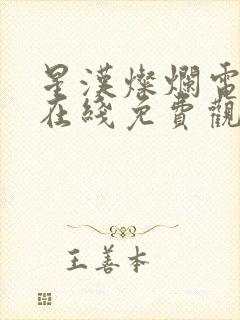 星漢燦爛電
在綫免費觀
王善本